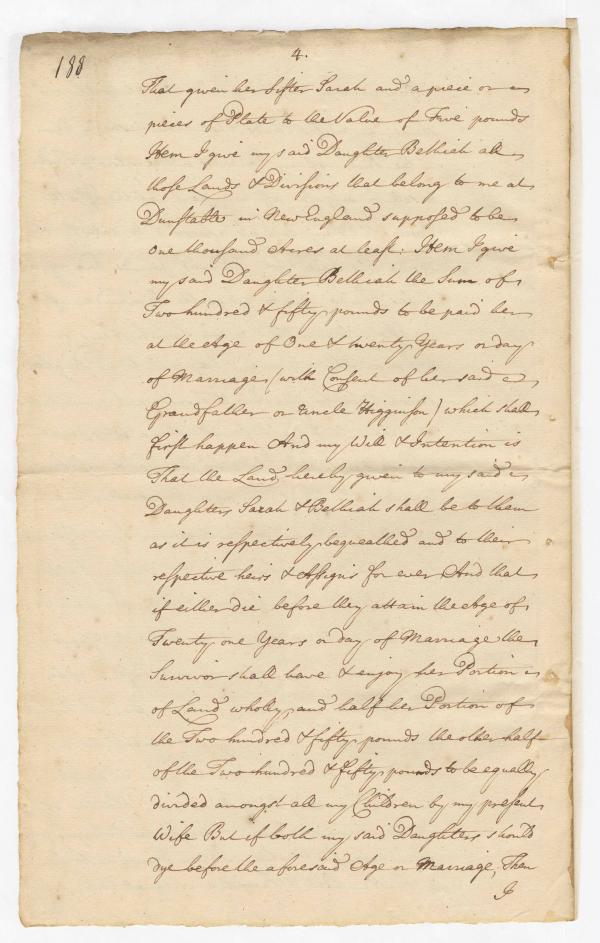 188
4.
That given her Sister Sarah and a piece or
pieces of Plate to the Value of Five pounds
Item I give my said Daughter Bethiah all
those Lands & Divisions that belong to me at
Dunstable in New England supposed to be
One thousand Acres at least: Item I give
my said Daughter Bethiah the Sum of
Two hundred & fifty pounds to be paid her
at the Age of One & twenty Years or day
of Marriage (with Consent of her said
Grandfather or Uncle Higginson) which shall
first happen And my Will & Intention is
That the Land hereby given to my said
Daughters Sarah & Bethiah shall be to them
as it is respectively bequeathed and to their
respective heirs & Assigns for ever And that
if either die before they attain the Age of
Twenty one Years or day of Marriage the
Survivor shall have & enjoy her Portion
of Land wholly, and half her Portion of
the Two hundred & fifty pounds the other half
of the Two hundred & Fifty pounds to be equally
divided amongst all my Children by my present
Wife But if both my said Daughters should
dye before the aforesaid Age or Marriage, Then
I